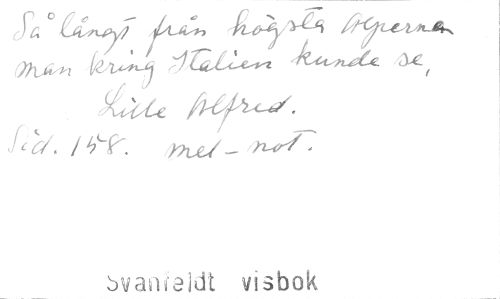 Så långt från högsta Alperna
man kring Italien kunde se,
Lille Alfred.
Sid. 158. mel-not.
Svanfeldt visbok